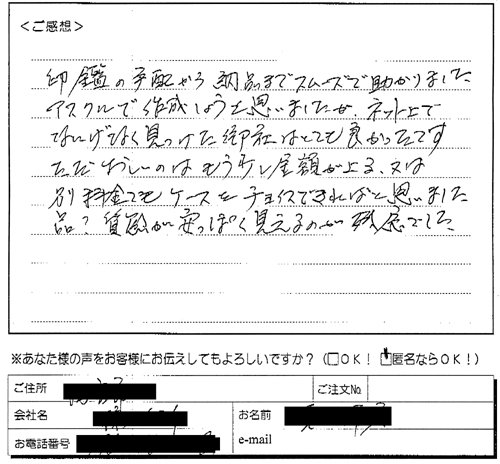 <ご感想>
印鑑の手配から納品までスムーズで助かりました
アスクルで作成しようと思いましたが、ネット上で
なにげなく見つけた御社はとても良かったです
ただおしいのはもう少し金額が上る、又は
別料金でもケースをチョイスできればと思いました
品?質感が安っぽく見えるのが残念でした
※あなた様の声をお客様にお伝えしてもよろしいですか?(□OK! □匿名ならOK!)
ご住所 ご注文No.
会社名 お名前
お電話番号 e-mail